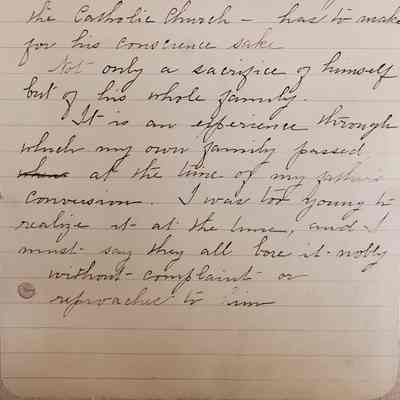 the Catholic Church – has to make
for his conscience sake
Not only a sacrifice of himself
but of his whole family.
It is an experience through
which my own family passed
at the time of my father's
conversion. I was too young to
realize it at the time, and I
must say they all bore it nobly
without complaint or
reproaches to him